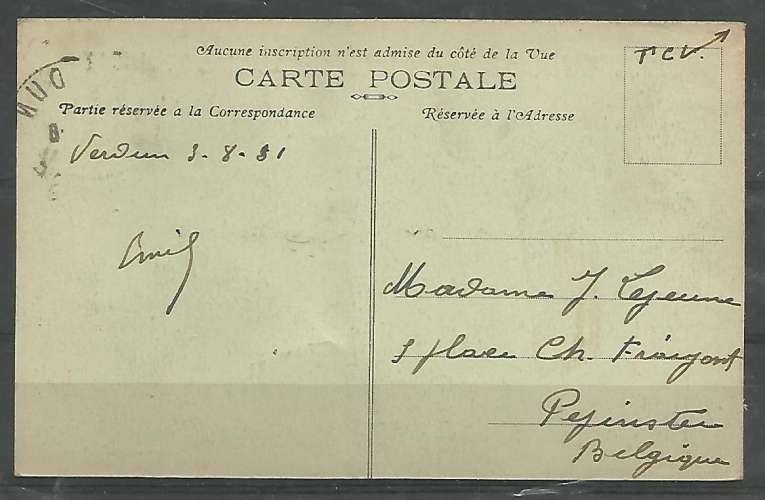 Aucune inscription n'est admise du côté de la Vue
CARTE POSTALE
Partie réservée a la Correspondance
Réservée à l'Adresse
T C V.
Verdun 3-8-31
Emil
Madame J. Lejeune
place Ch.
Pepinster
Belgique